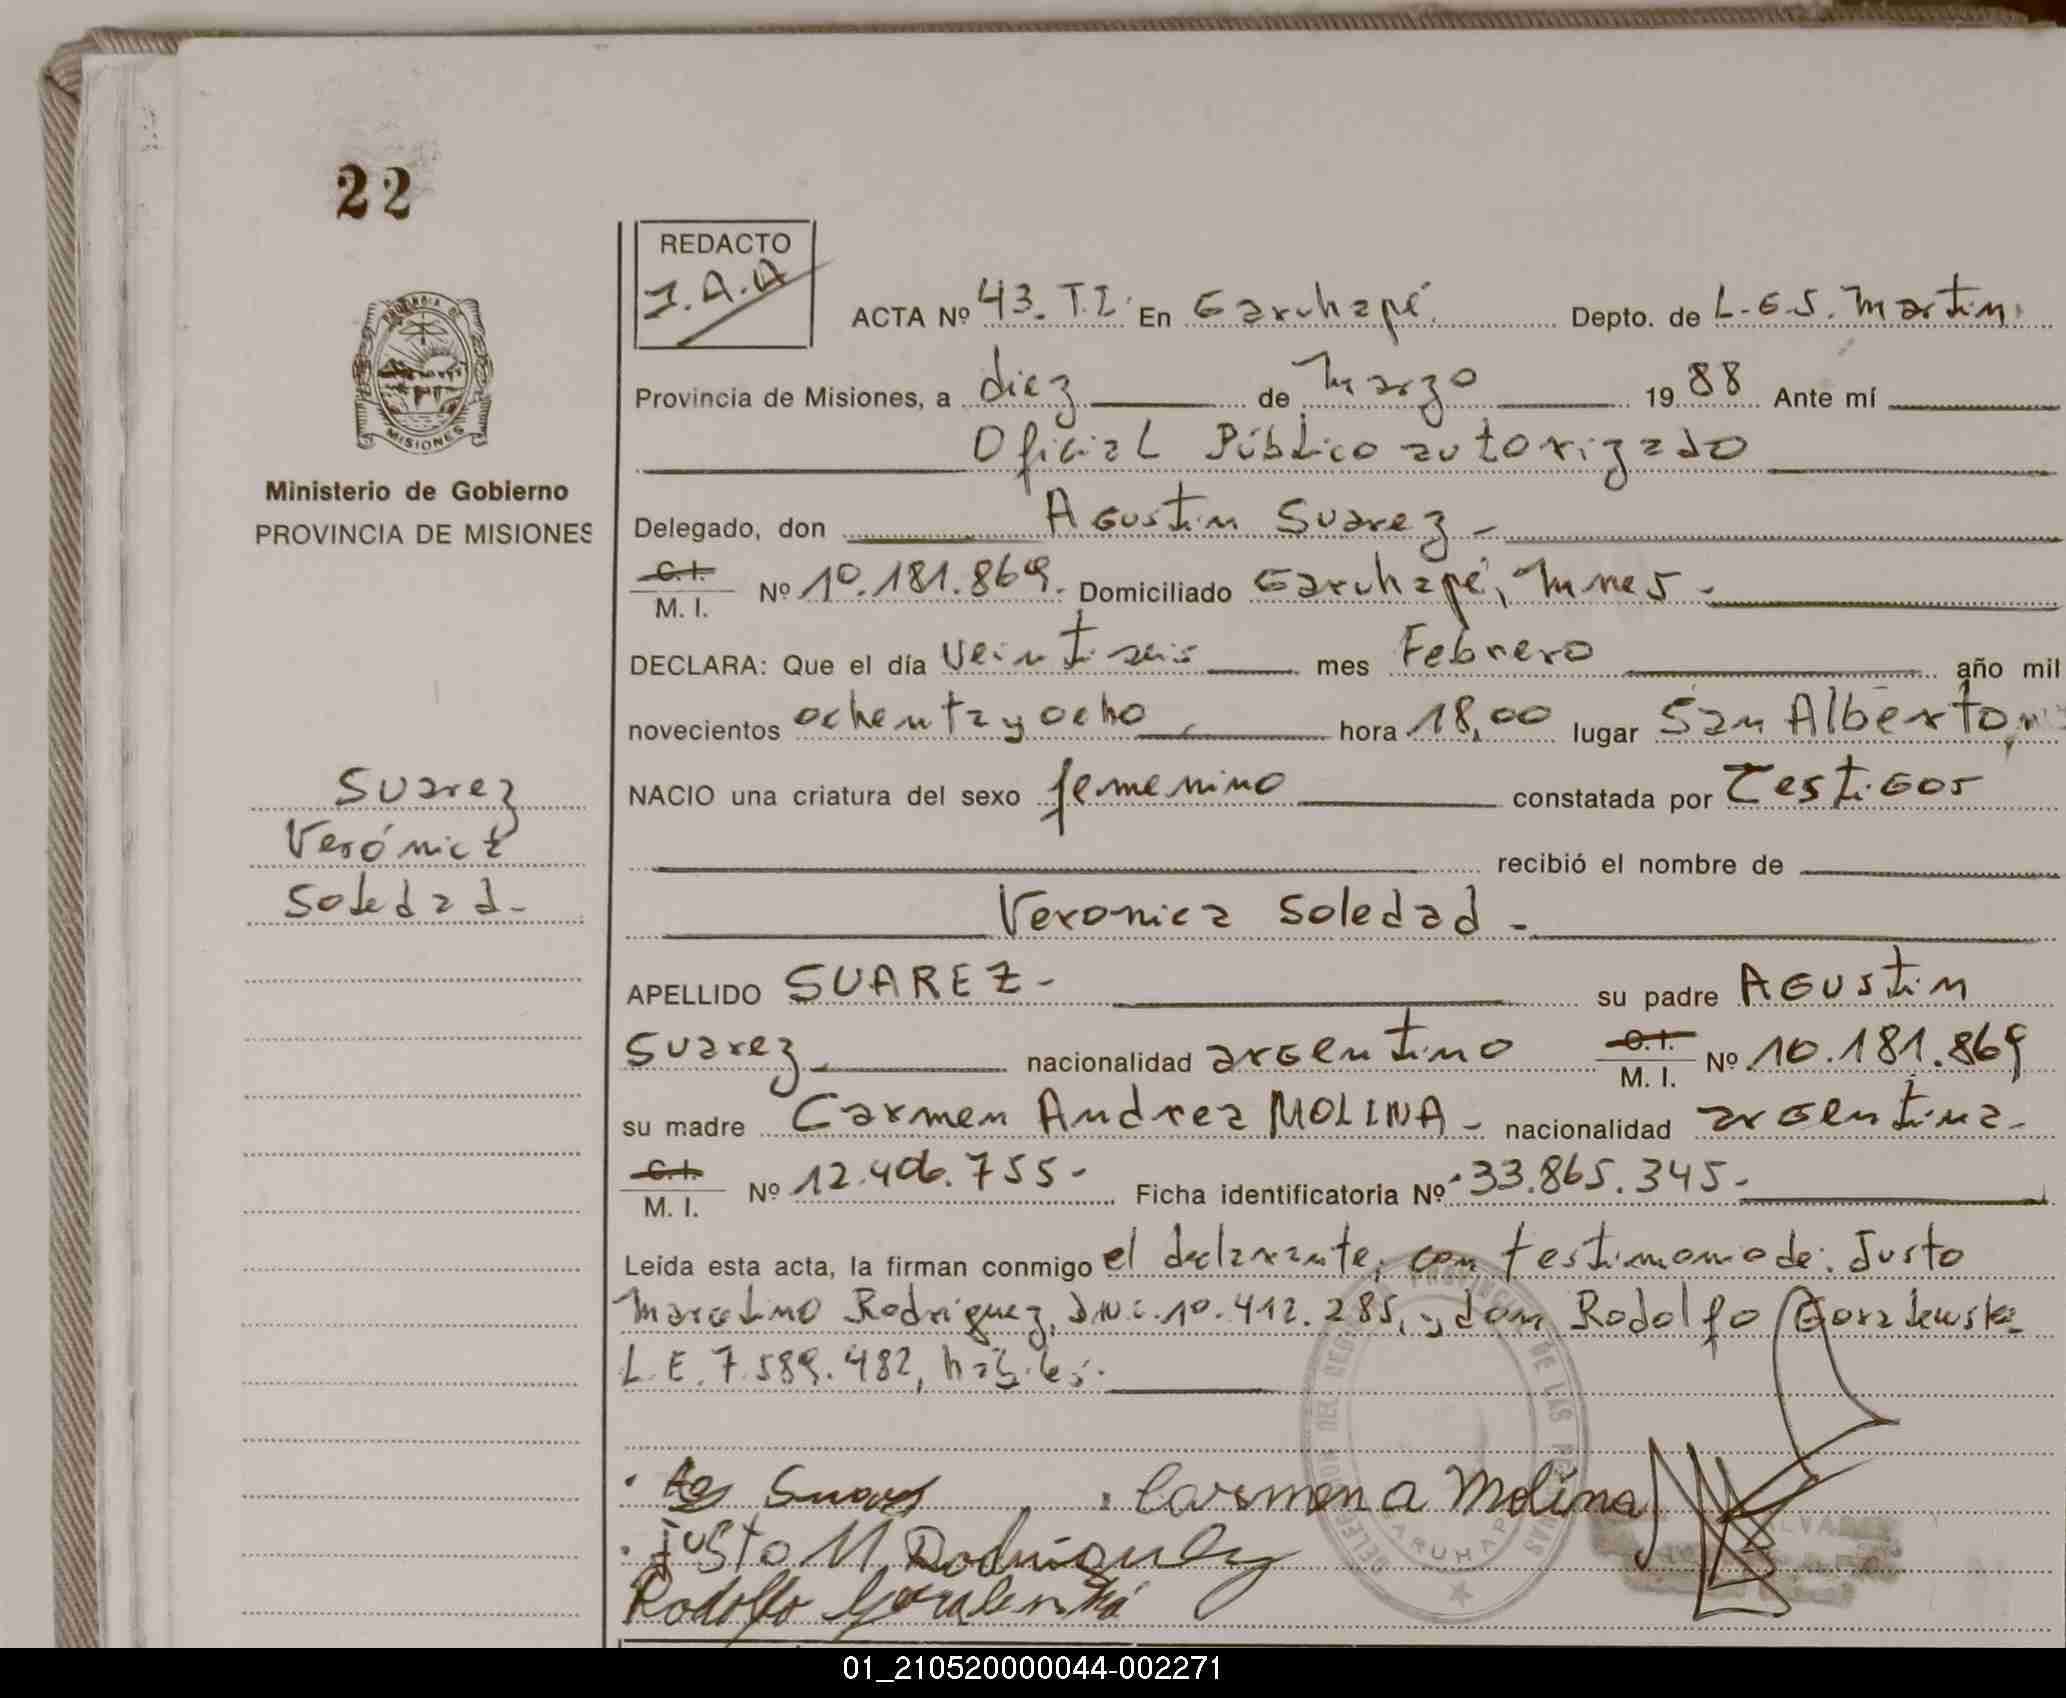 22
REDACTO
J.A.A
ACTA Nº 43. T.I. En Garuhapé. Depto. de L.G.S. Martin.
Provincia de Misiones, a diez de Marzo 1988 Ante mí
Oficial Público autorizado
MISIONES
Ministerio de Gobierno
PROVINCIA DE MISIONES
Delegado, don Agustin Suarez -
C.I.
M. I. Nº 10.181.869. Domiciliado Garuhapé, Mnes -
DECLARA: Que el día veintiseis mes Febrero año mil
novecientos ochenta y ocho, hora 18,00 lugar San Alberto,
Suarez
Verónica
Soledad-
NACIO una criatura del sexo femenino constatada por Testigos
recibió el nombre de
Veronica Soledad -
APELLIDO SUAREZ - su padre Agustin
Suarez nacionalidad argentino C.I. M. I. Nº 10.181.869
su madre Carmen Andrea MOLINA - nacionalidad argentina -
C.I.
M. I. Nº 12.406.755- Ficha identificatoria Nº 33.865.345-
Leída esta acta, la firman conmigo el declarante, con testimonio de: Justo
Marcelino Rodriguez, D.N.I. 10.412.285, y don Rodolfo Goralewski
L.E. 7.589.482, hábiles.
Suarez Carmen A Molina
Justo M Rodriguez
Rodolfo Goralewski
PROVINCIA DE LAS PERSONAS
GARUHAPE
01_210520000044-002271